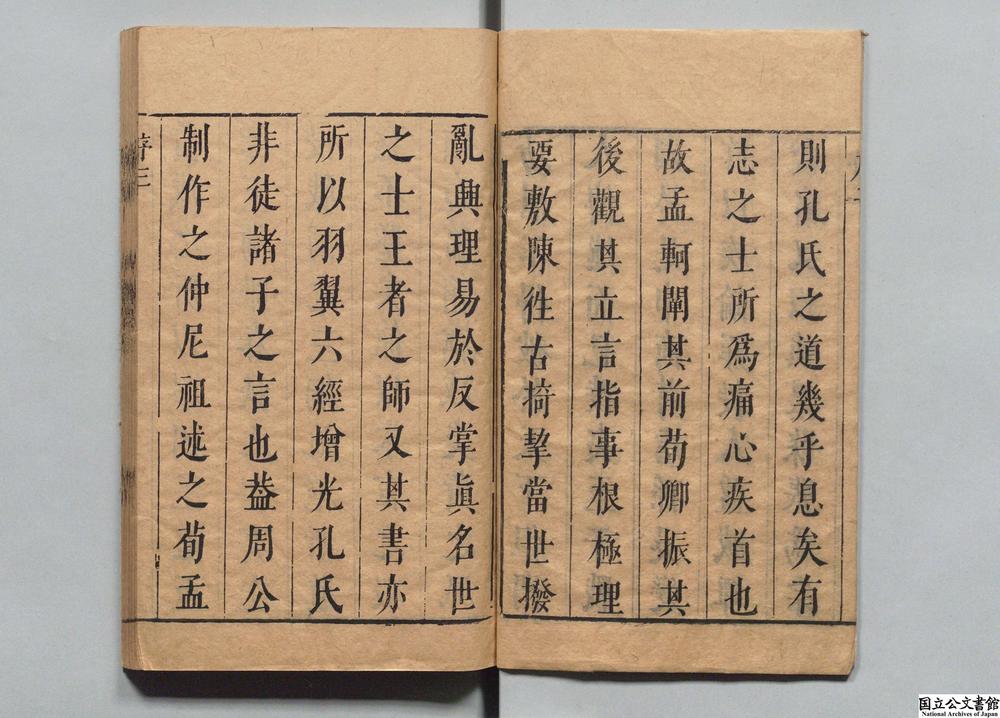 則孔氏之道幾乎息矣有
志之士所爲痛心疾首也
故孟軻闡其前荀卿振其
後觀其立言指事根極理
要敷陳徃古掎挈當世撥
亂興理易於反掌眞名世
之士王者之師又其書亦
所以羽翼六經增光孔氏
非徒諸子之言也葢周公
制作之仲尼祖述之荀孟
序三
国立公文書館
National Archives of Japan